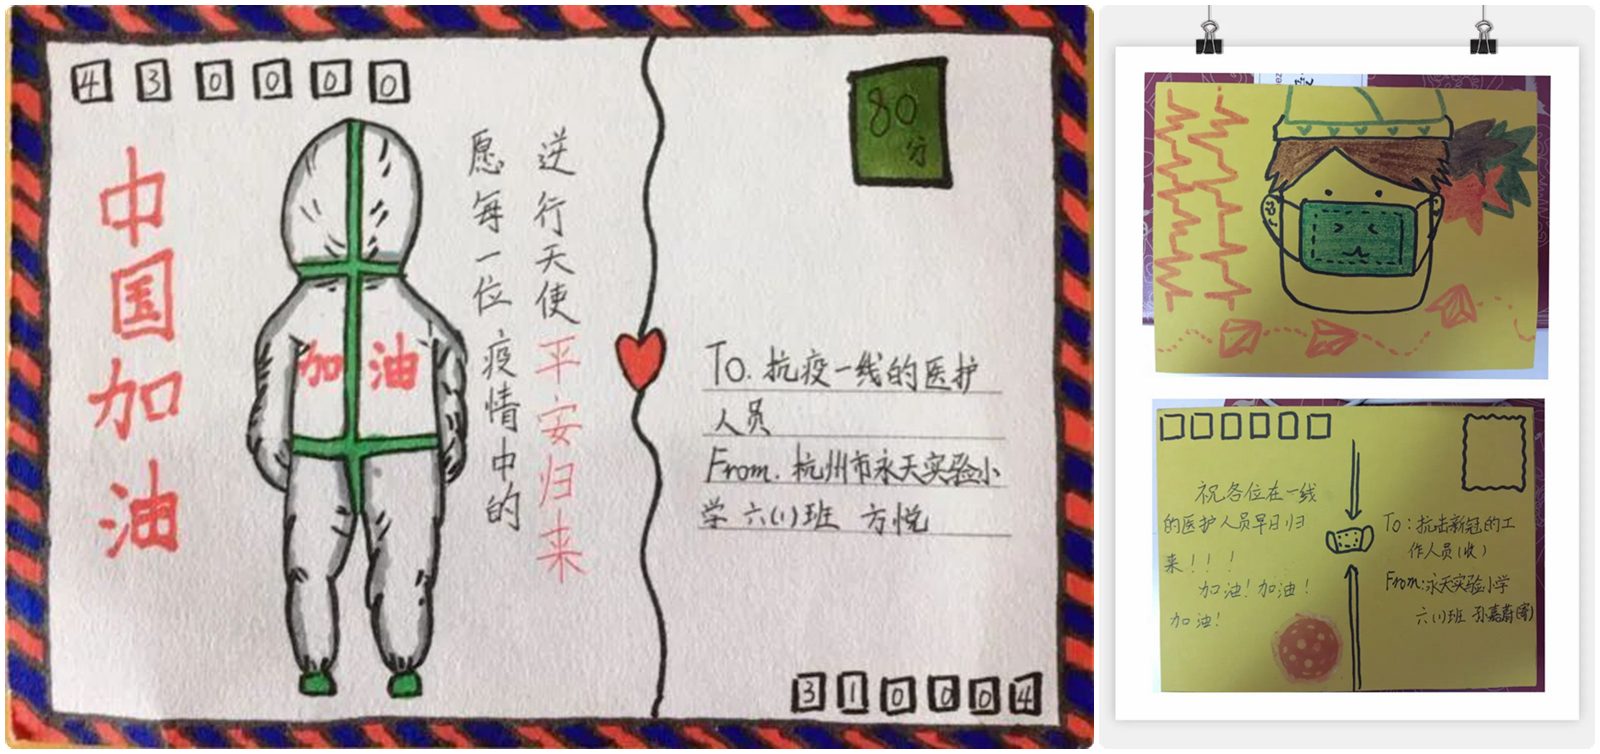 430000
中国加油
加油
愿每一位疫情中的
逆行天使平安归来
80
分
To. 抗疫一线的医护
人员
From. 杭州市永天实验小
学 六(1)班 方悦
310004
祝各位在一线
的医护人员早日归
来！！！
加油！加油！
加油！
To：抗击新冠的工
作人员(收)
From:永天实验小学
六(1)班 孙嘉蔚(寄)